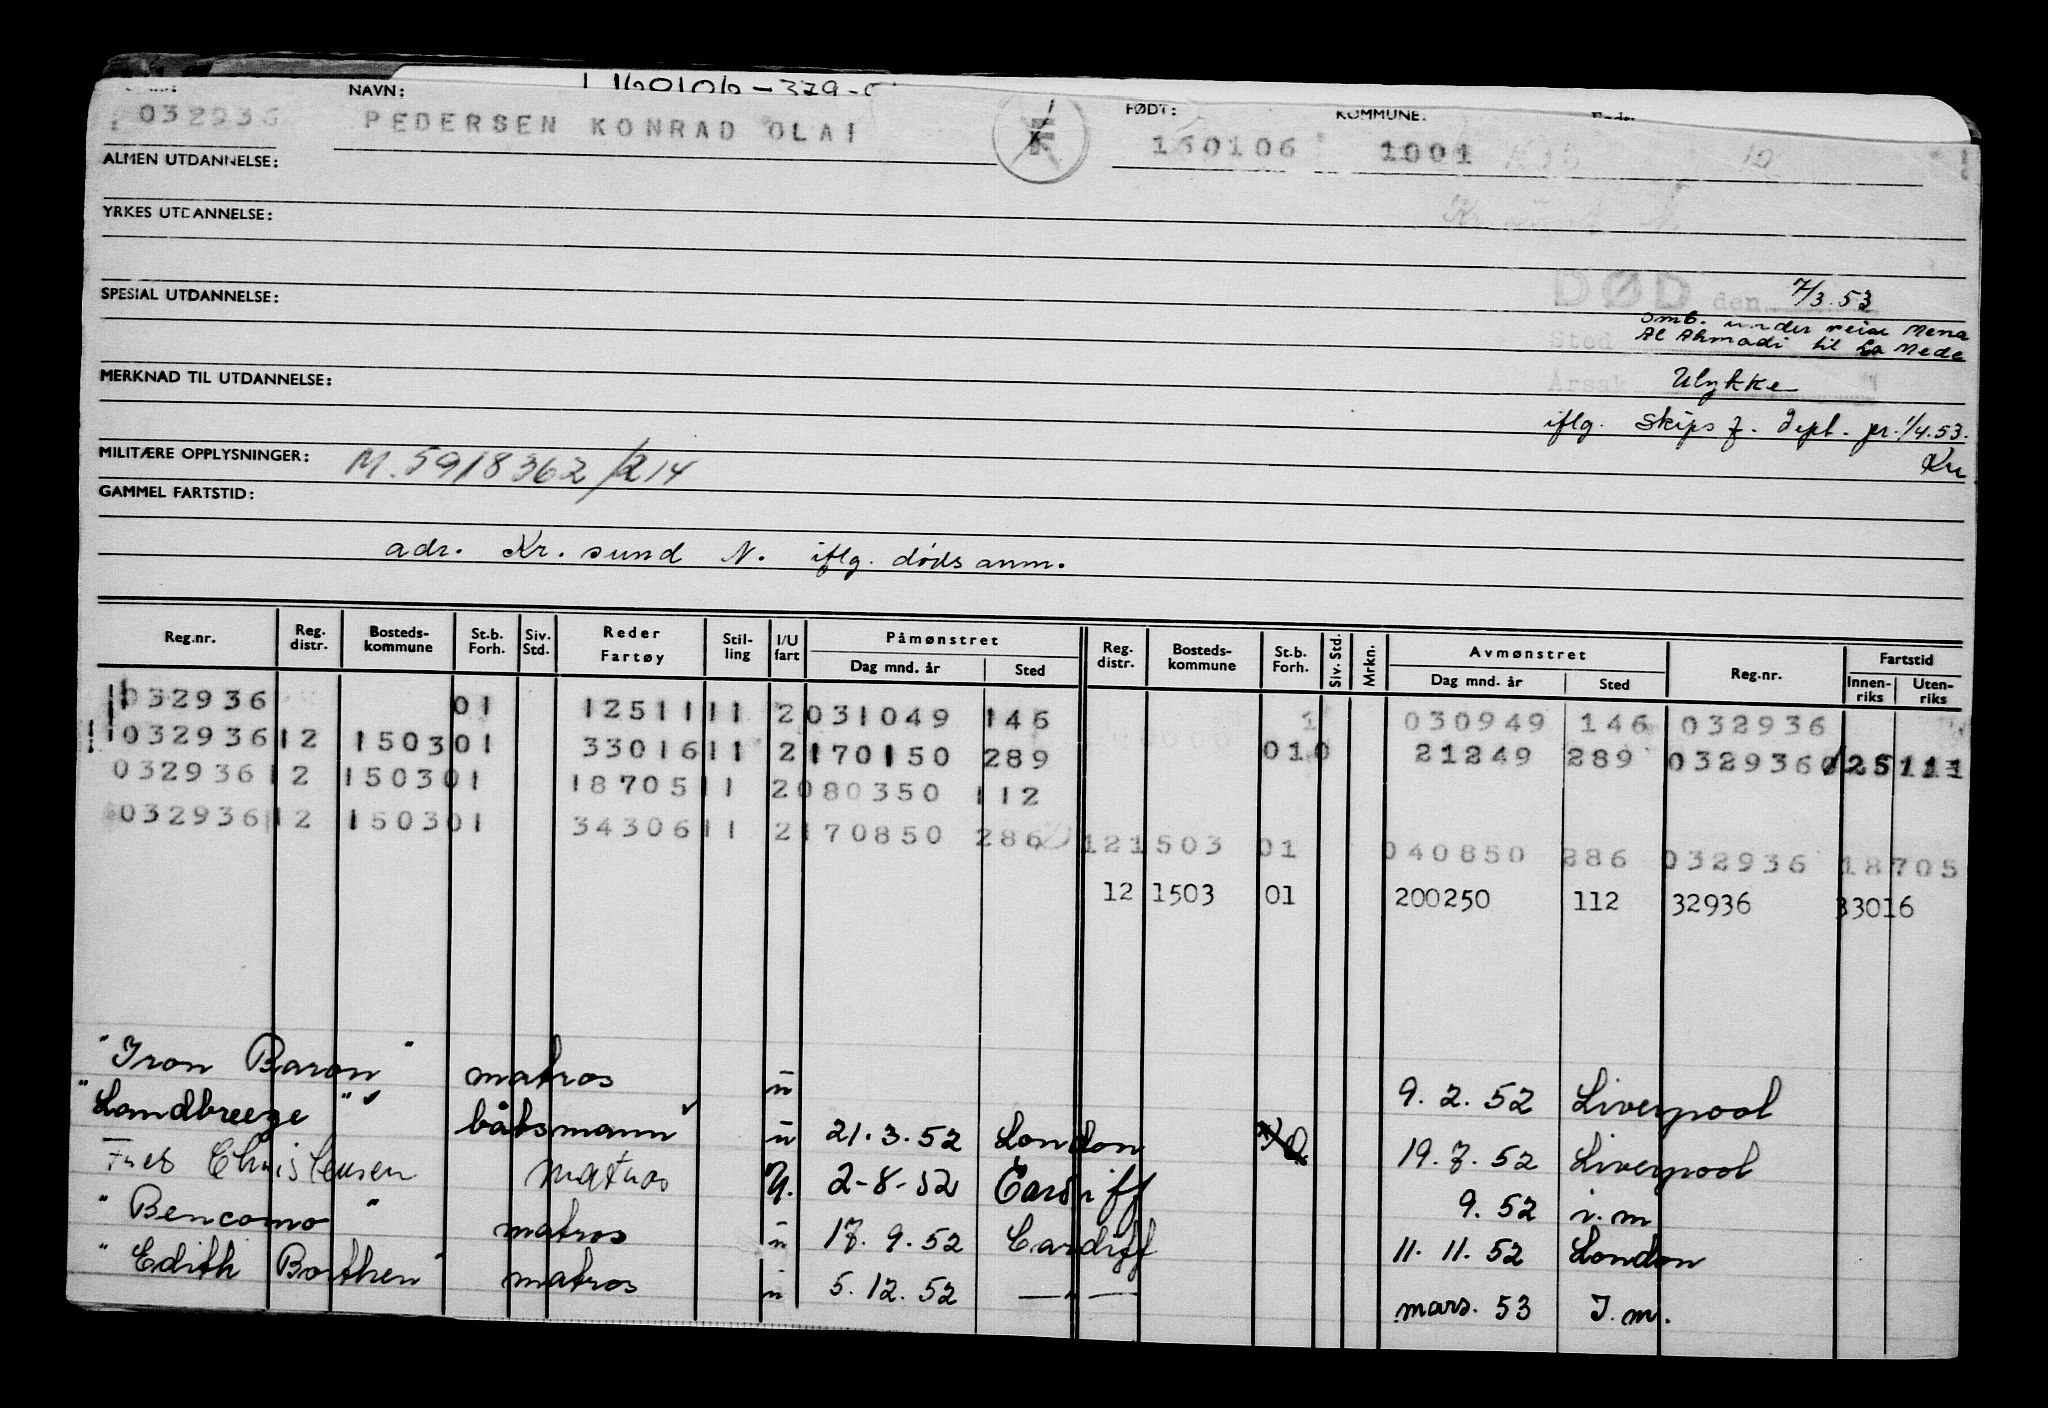 160106-379-
NAVN: FØDT: KOMMUNE:
032936 PEDERSEN KONRAD OLAI 160106 1001
ALMEN UTDANNELSE:
YRKES UTDANNELSE:
SPESIAL UTDANNELSE:
DØD den 7/3.53
Sted omb. under reise Mena
Al Ahmadi til La Mede
MERKNAD TIL UTDANNELSE:
Årsak Ulykke
iflg. Skips f. dept. pr. 1/4.53.
Kr
MILITÆRE OPPLYSNINGER: M.5918362/214
GAMMEL FARTSTID:
adr. Kr. sund N. iflg. dødsanm.
Reg.nr. Reg. distr. Bosteds-kommune St.b. Forh. Siv. Std. Reder Fartøy Stil-ling I/U fart Påmønstret Dag mnd. år Sted Reg. distr. Bosteds-kommune St.b. Forh. Siv. Std. Mrkn. Avmønstret Dag mnd. år Sted Reg.nr. Fartstid Innen-riks Uten-riks
032936 01 12511 11 2 031049 146 1 030949 146 032936
032936 12 1503 01 33016 11 2 170150 289 010 21249 289 032936 25111
032936 12 1503 01 18705 11 2 080350 112
032936 12 1503 01 34306 11 2 170850 286 12 1503 01 040850 286 032936 18705
12 1503 01 200250 112 32936 33016
"Iron Baron" matros u 9.2.52 Liverpool
"Landbreeze" båtsmann u 21.3.52 London 19.7.52 Liverpool
Fred Christensen Matros U. 2-8-52 Cardiff 9.52 i.m
"Bencomo" matros u 17.9.52 Cardiff 11.11.52 London
"Edith Borthen" matros u 5.12.52 —"— mars. 53 I.m.